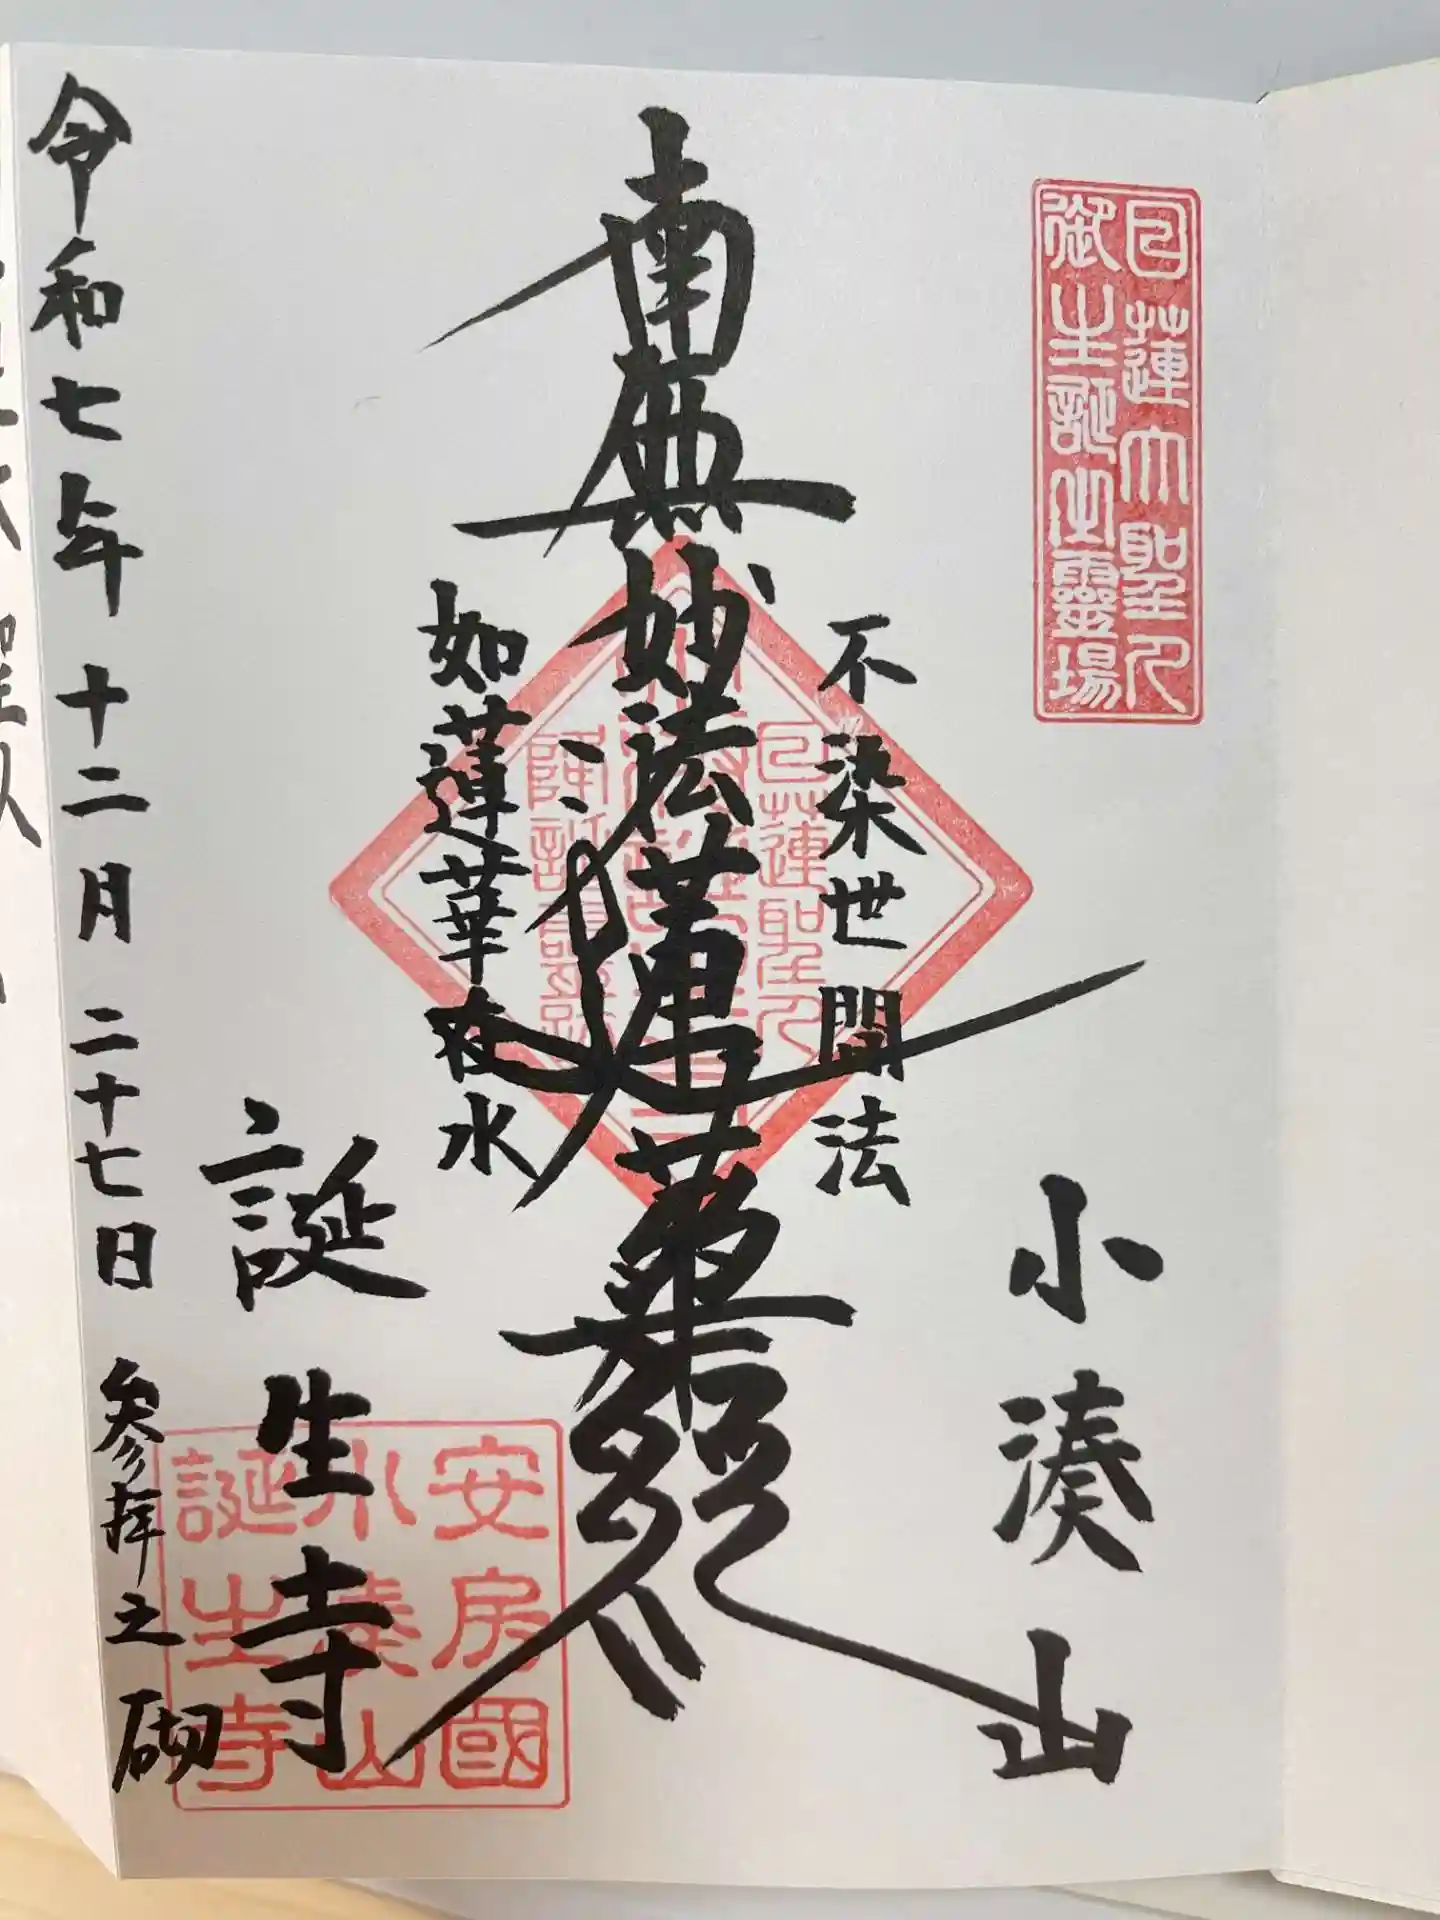 日蓮大聖人
御生誕之霊場
小湊山
不染世間法
南無妙法蓮華経
如蓮華在水
日蓮聖人
降誕霊跡
誕生寺
安房國
小湊山
誕生寺
令和七年十二月二十七日参拝之砌